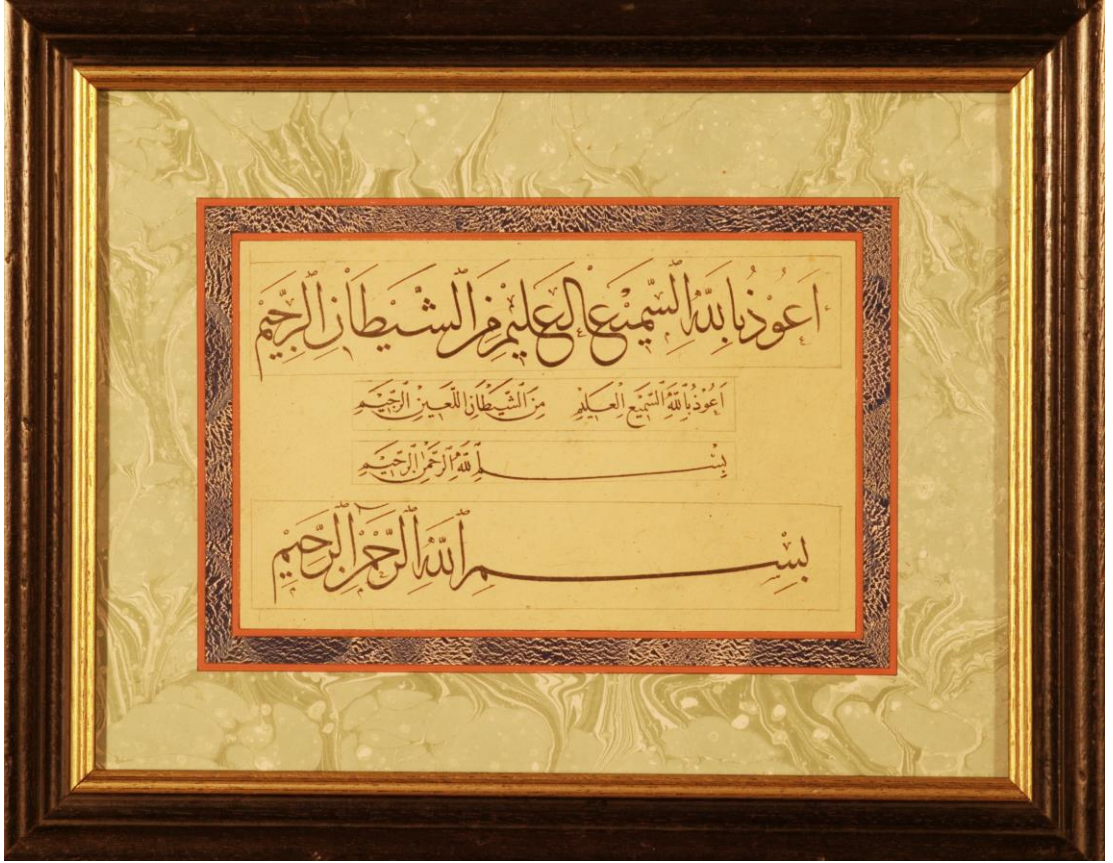 اَعُوْذُ بِاللّٰهِ السَّمِيْعِ الْعَلِيْمِ مِنَ الشَّيْطَانِ الرَّجِيْمِ
اَعُوْذُ بِاللّٰهِ السَّمِيْعِ الْعَلِيْمِ مِنَ الشَّيْطَانِ اللَّعِيْنِ الرَّجِيْمِ
بِسْمِ اللّٰهِ الرَّحْمٰنِ الرَّحِيْمِ
بِسْمِ اللّٰهِ الرَّحْمٰنِ الرَّحِيْمِ